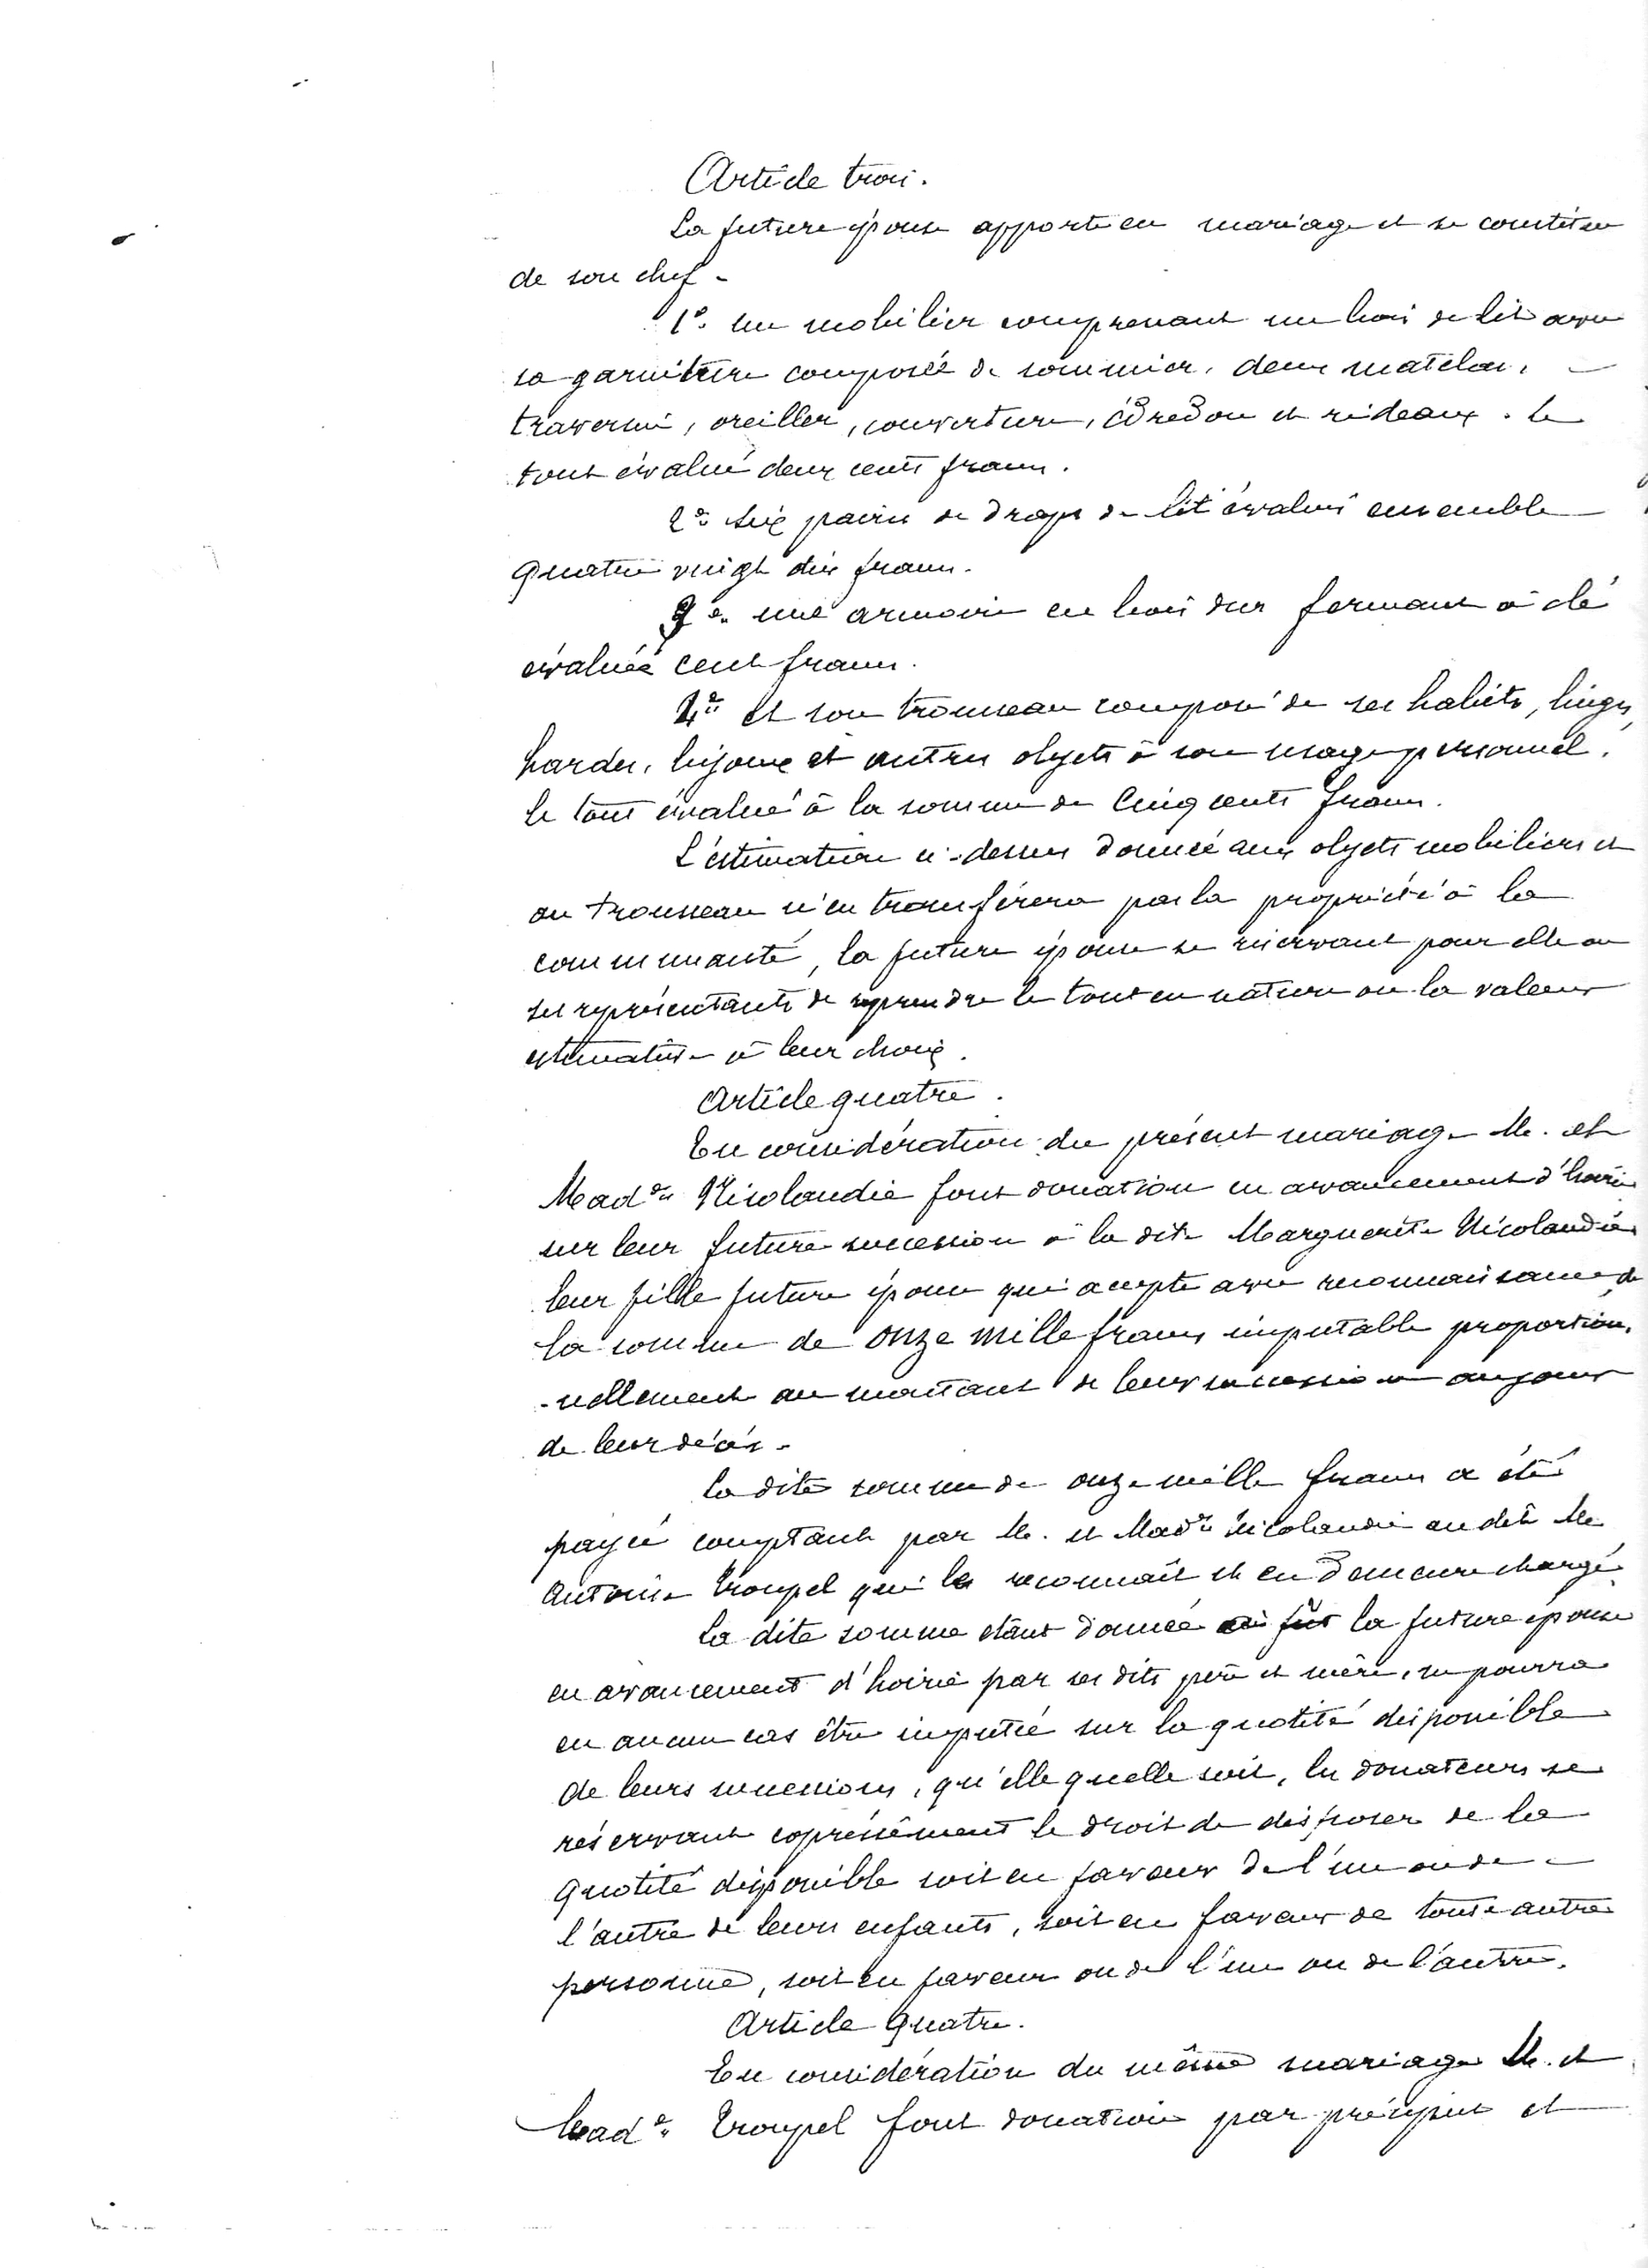 Article trois.
La future épouse apporte en mariage et se constitue
de son chef -
1º. un mobilier comprenant un bois de lit avec
sa garniture composée de sommier, deux matelas,
traversin, oreiller, couverture, édredon et rideaux. le
tout évalué deux cents francs.
2º six paires de draps de lit évalués ensemble
quatre vingt dix francs.
3º. une armoire en bois dur fermant à clé
évaluée cent francs.
4º et son trousseau composé de ses habits, linges,
hardes, bijoux et autres objets à son usage personnel.
le tout évalué à la somme de Cinq cents francs.
L'estimation ci-dessus donnée aux objets mobiliers et
au trousseau n'en transférera pas la propriété à la
communauté, la future épouse se réservant pour elle ou
ses représentants de reprendre le tout en nature ou la valeur
estimative à leur choix.
Article quatre.
En considération du présent mariage M. et
Madº Nicolaudie font donation en avancement d'hoirie
sur leur future succession à la dite Marguerite Nicolaudie
leur fille future épouse qui accepte avec reconnaissance de
la somme de onze mille francs imputable proportion.
-nellement au montant de leur succession au jour
de leur décès.
La dite somme de onze mille francs a été
payée comptant par M. et Madº Nicolaudie au dit M.
Antoine Troupel qui le reconnait et en demeure chargé.
La dite somme étant donnée la future épouse
en avancement d'hoirie par ses dits père et mère, ne pourra
en aucun cas être imputée sur la quotité disponible
de leurs successions, qu'elle quelle soit, les donateurs se
réservant expressément le droit de disposer de la
quotité disponible soit en faveur de l'un ou de
l'autre de leurs enfants, soit en faveur de toute autre
personne, soit en faveur ou de l'un ou de l'autre.
Article Quatre.
En considération du même mariage M. et
Madº Troupel font donation par préciput et